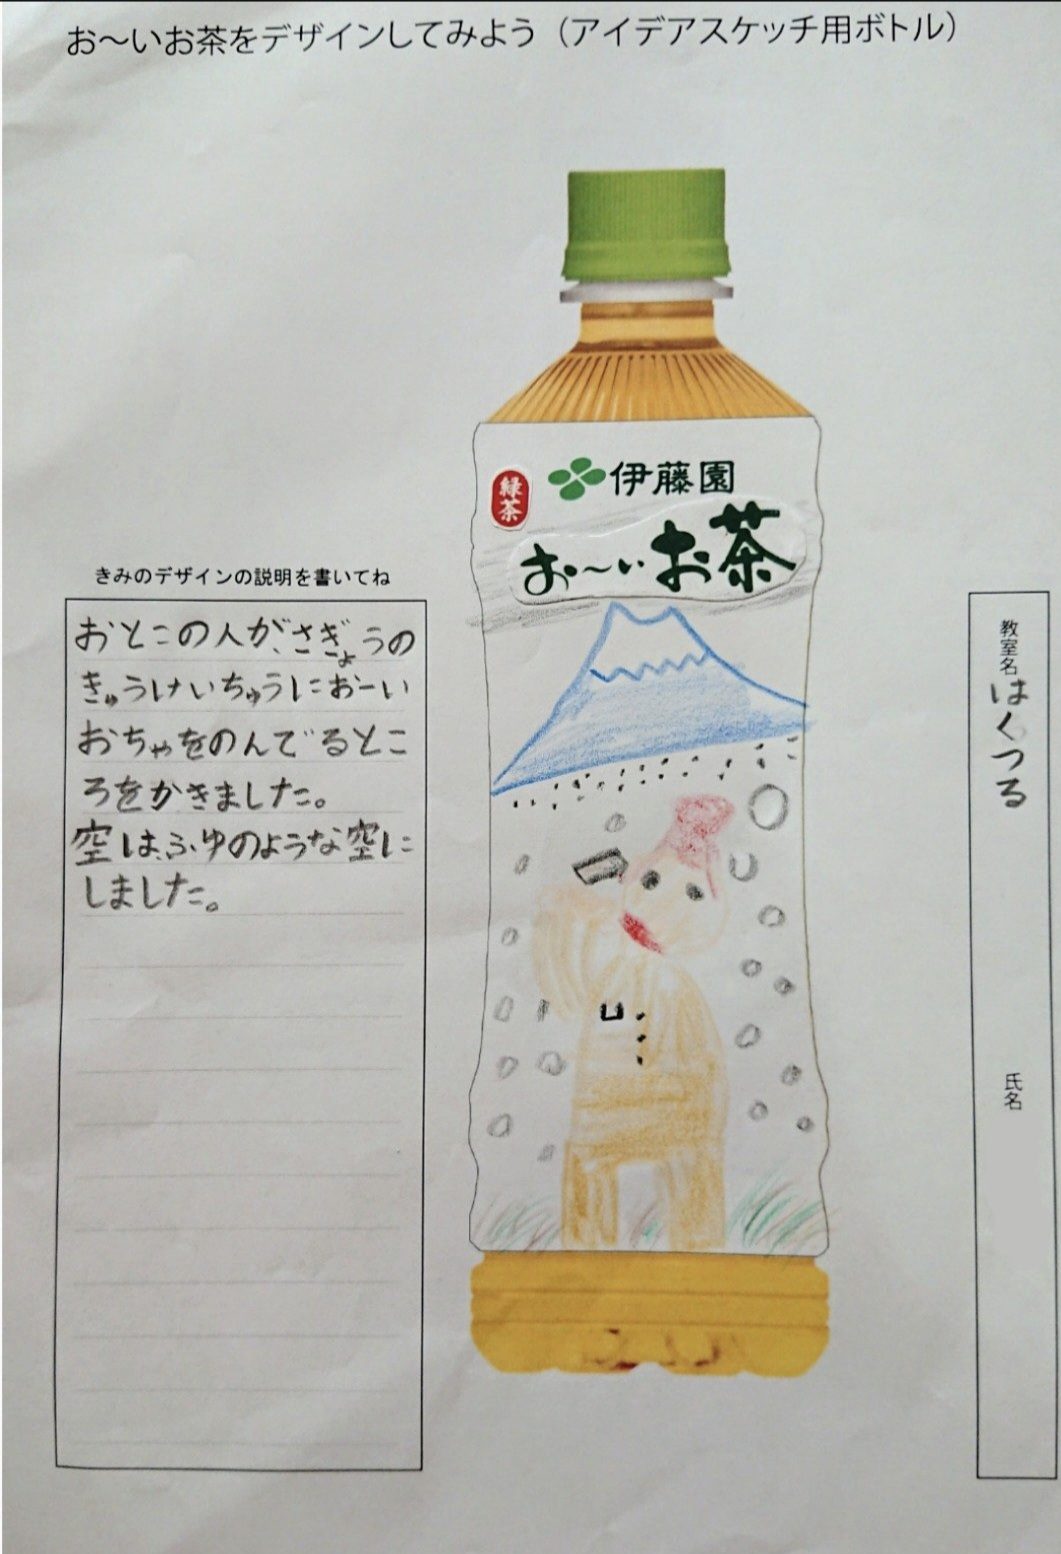 お～いお茶をデザインしてみよう（アイデアスケッチ用ボトル）
緑茶
伊藤園
お～いお茶
きみのデザインの説明を書いてね
おとこの人が、さぎょうの
きゅうけいちゅうにおーい
おちゃをのんでるとこ
ろをかきました。
空は、ふゆのような空に
しました。
教室名
はくつる
氏名